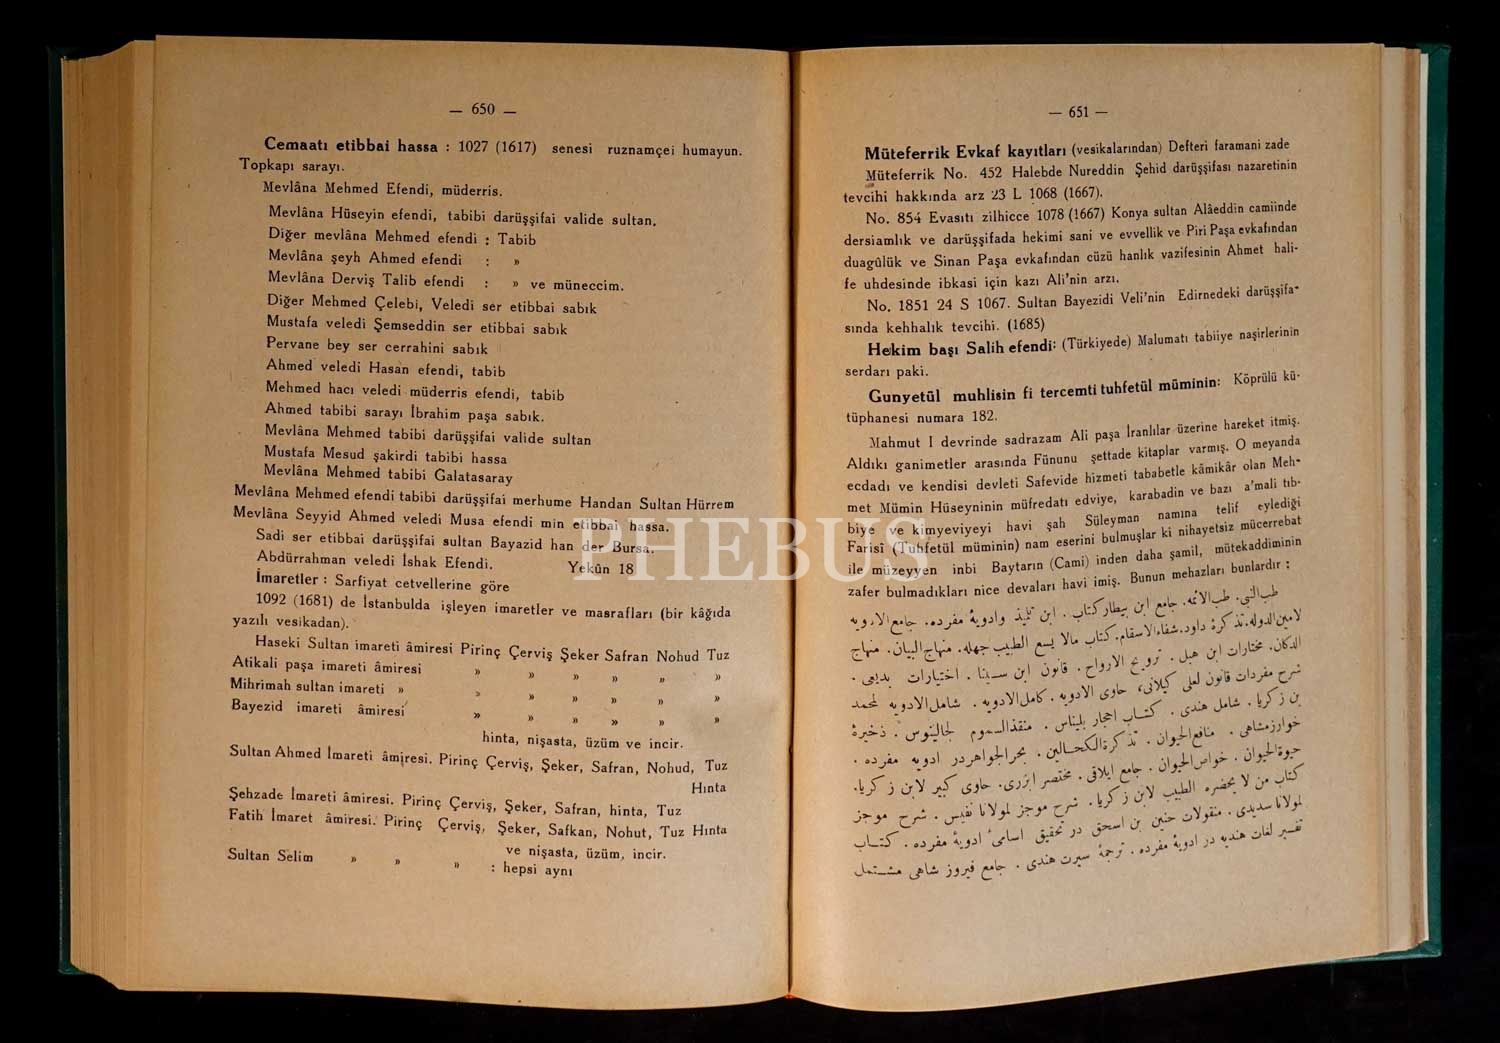 — 650 —
Cemaatı etibbai hassa : 1027 (1617) senesi ruznamçei humayun.
Topkapı sarayı.
Mevlâna Mehmed Efendi, müderris.
Mevlâna Hüseyin efendi, tabibi darüşşifai valide sultan.
Diğer mevlâna Mehmed efendi : Tabib
Mevlâna şeyh Ahmed efendi : »
Mevlâna Derviş Talib efendi : » ve müneccim.
Diğer Mehmed Çelebi, Veledi ser etibbai sabık
Mustafa veledi Şemseddin ser etibbai sabık
Pervane bey ser cerrahini sabık
Ahmed veledi Hasan efendi, tabib
Mehmed hacı veledi müderris efendi, tabib
Ahmed tabibi sarayı İbrahim paşa sabık.
Mevlâna Mehmed tabibi darüşşifai valide sultan
Mustafa Mesud şakirdi tabibi hassa
Mevlâna Mehmed tabibi Galatasaray
Mevlâna Mehmed efendi tabibi darüşşifai merhume Handan Sultan Hürrem
Mevlâna Seyyid Ahmed veledi Musa efendi min etibbai hassa.
Sadi ser etibbai darüşşifai sultan Bayazid han der Bursa.
Abdürrahman veledi İshak Efendi. Yekûn 18
İmaretler : Sarfiyat cetvellerine göre
1092 (1681) de İstanbulda işleyen imaretler ve masrafları (bir kâğıda
yazılı vesikadan).
Haseki Sultan imareti âmiresi Pirinç Çerviş Şeker Safran Nohud Tuz
Atikali paşa imareti âmiresi » » » » » »
Mihrimah sultan imareti » » » » » » »
Bayezid imareti âmiresi » » » » » »
hinta, nişasta, üzüm ve incir.
Sultan Ahmed İmareti âmiresi. Pirinç Çerviş, Şeker, Safran, Nohud, Tuz
Hınta
Şehzade İmareti âmiresi. Pirinç Çerviş, Şeker, Safran, hinta, Tuz
Fatih İmaret âmiresi. Pirinç Çerviş, Şeker, Safkan, Nohut, Tuz Hınta
ve nişasta, üzüm, incir.
Sultan Selim » » » : hepsi aynı
— 651 —
Müteferrik Evkaf kayıtları (vesikalarından) Defteri faramani zade
Müteferrik No. 452 Halebde Nureddin Şehid darüşşifası nazaretinin
tevcihi hakkında arz 23 L 1068 (1667).
No. 854 Evasıtı zilhicce 1078 (1667) Konya sultan Alâeddin camiinde
dersiamlık ve darüşşifada hekimi sani ve evvellik ve Piri Paşa evkafından
duagûlük ve Sinan Paşa evkafından cüzü hanlık vazifesinin Ahmet hali-
fe uhdesinde ibkasi için kazı Ali'nin arzı.
No. 1851 24 S 1067. Sultan Bayezidi Veli'nin Edirnedeki darüşşifa-
sında kehhalık tevcihi. (1685)
Hekim başı Salih efendi: (Türkiyede) Malumatı tabiiye naşirlerinin
serdarı paki.
Gunyetül muhlisin fi tercemti tuhfetül müminin: Köprülü kü-
tüphanesi numara 182.
Mahmut I devrinde sadrazam Ali paşa İranlılar üzerine hareket itmiş.
Aldıkı ganimetler arasında Fününu şettade kitaplar varmış. O meyanda
ecdadı ve kendisi devleti Safevide hizmeti tababetle kâmikâr olan Meh-
met Mümin Hüseyninin müfredatı edviye, karabadin ve bazı a'mali tıb-
biye ve kimyeviyeyi havi şah Süleyman namına telif eylediği
Farisî (Tuhfetül müminin) nam eserini bulmuşlar ki nihayetsiz mücerrebat
ile müzeyyen inbi Baytarın (Cami) inden daha şamil, mütekaddiminin
zafer bulmadıkları nice devaları havi imiş. Bunun mehazları bunlardır :
طب‌النبی. طب‌الائمه. جامع ابن بیطار کتاب . ابن تلمیذ وادویهٔ مفرده. جامع‌الادویه
لامین‌الدوله. تذکرهٔ داود. شفاءالاسقام. کتاب مالا یسع الطبیب جهله. منهاج‌البیان. منهاج
الدکان. مختارات ابن هبل. ترویح الارواح. قانون ابن سینا. اختیارات بدیعی.
شرح مفردات قانون لعلی کیلانی، حاوی الادویه. کامل‌الادویه. شامل‌الادویه لمحمد
بن زکریا. شامل هندی. کتاب احجار بلیناس. منقذالسموم لجالینوس. ذخیرهٔ
خوارزمشاهی. منافع‌الحیوان. تذکرةالکحالین. بحرالجواهر در ادویه مفرده.
حیوةالحیوان. خواص‌الحیوان. جامع ایلاقی. مختصر ابزری. حاوی کبیر لابن زکریا.
کتاب من لا یحضره الطبیب لابن زکریا. شرح موجز لمولانا نفیس. شرح موجز
لمولانا سدیدی. منقولات حنین بن اسحق در تحقیق اسامیٔ ادویهٔ مفرده. کتاب
تفسیر لغات هندیه در ادویهٔ مفرده. ترجمهٔ سیرت هندی. جامع فیروز شاهی مشتمل
PHEBUS